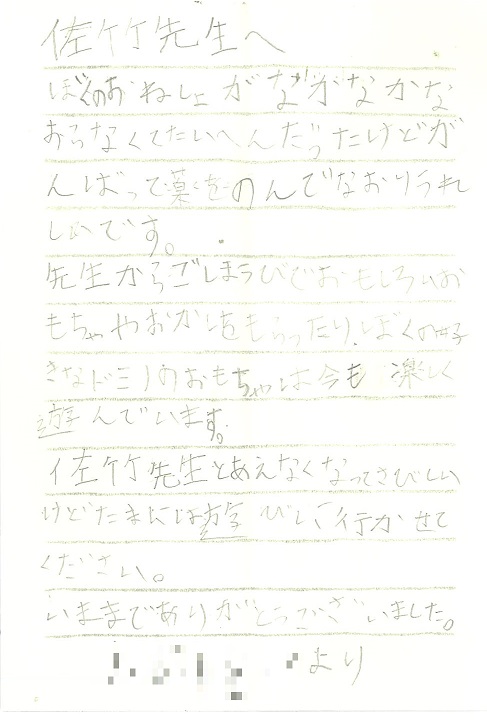 佐竹先生へ
ぼくのおねしょがなかなかな
おらなくてたいへんだったけどが
んばって薬をのんでなおりうれ
しいです。
先生からごほうびでおもしろいお
もちゃやおかしをもらったり、ぼくの好
きなドミノのおもちゃは今も楽しく
遊んでいます。
佐竹先生とあえなくなってさびしい
けどたまには遊びに行かせて
ください。
いままでありがとうございました。
より